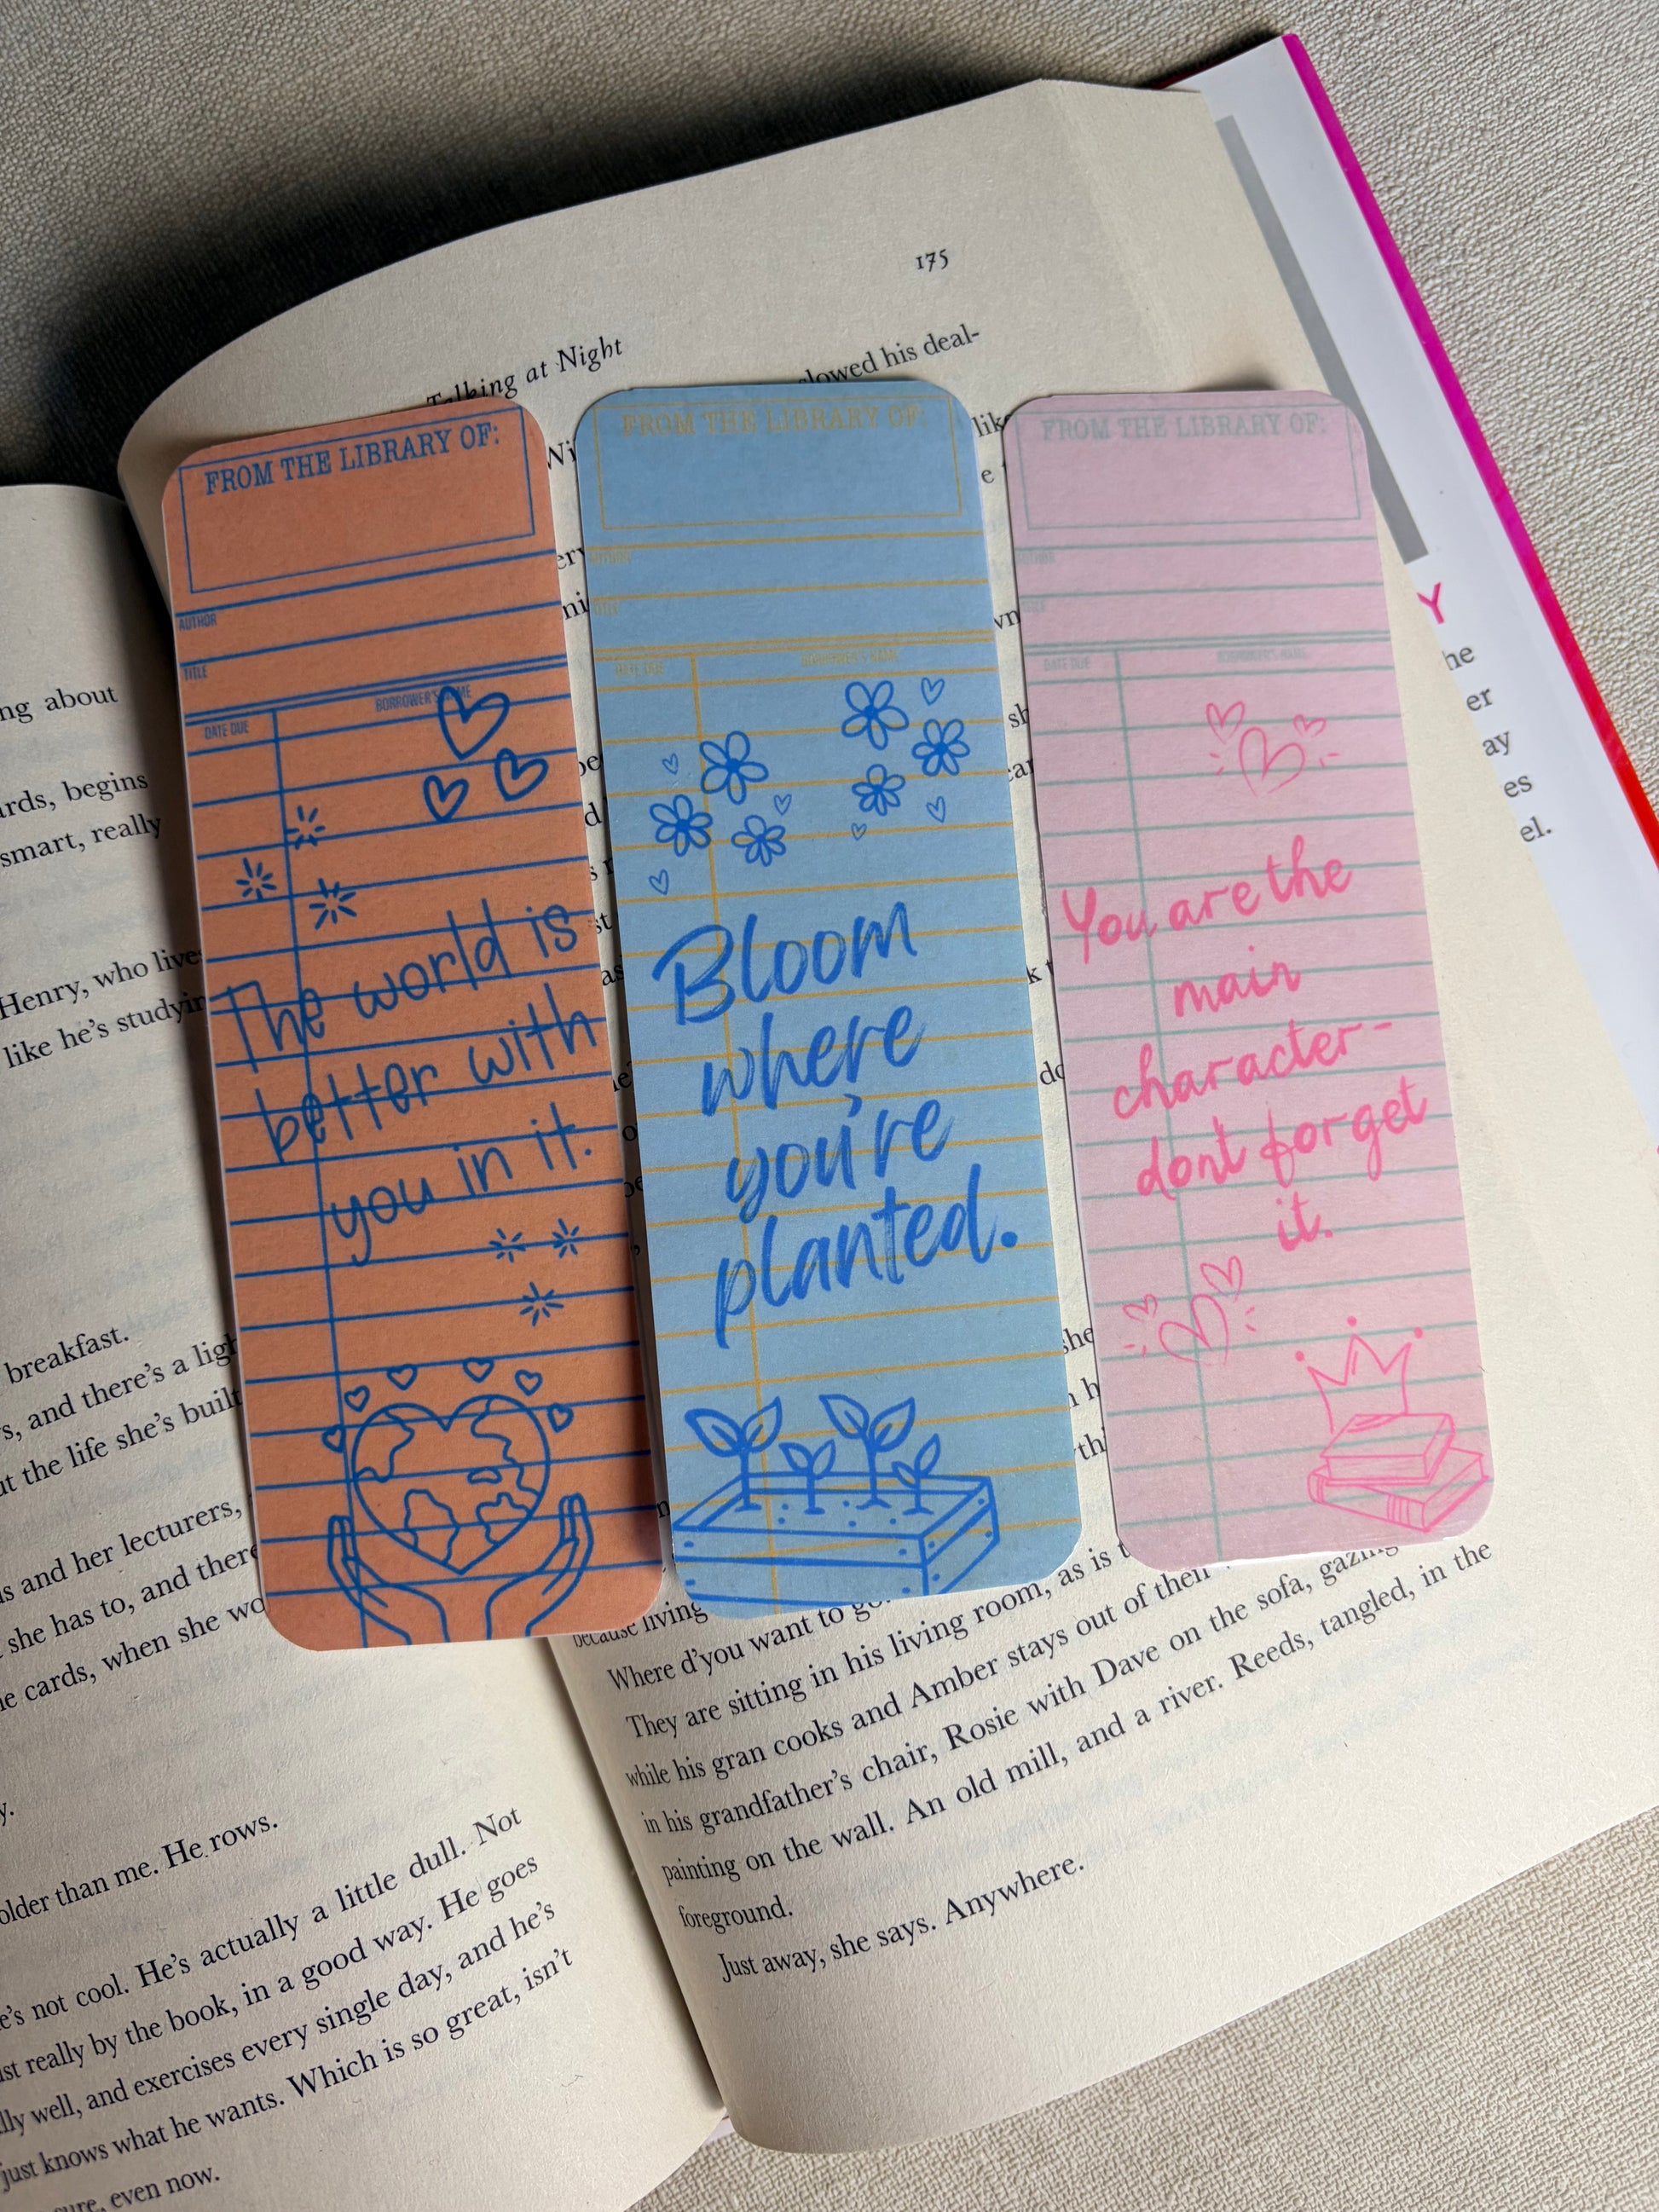 175
Talking at Night
slowed his deal-
FROM THE LIBRARY OF:
AUTHOR
TITLE
DATE DUE BORROWER'S NAME
The world is
better with
you in it.
FROM THE LIBRARY OF:
AUTHOR
TITLE
DATE DUE BORROWER'S NAME
Bloom
where
you're
planted.
FROM THE LIBRARY OF:
AUTHOR
TITLE
DATE DUE BORROWER'S NAME
You are the
main
character-
don't forget
it.
about
begins
smart, really
Henry, who
like he's
breakfast.
and there's a
the life she's built
and her lecturers,
she has to, and
cards, when she
older than me. He rows.
not cool. He's actually a little dull. Not
really by the book, in a good way. He goes
well, and exercises every single day, and he's
just knows what he wants. Which is so great, isn't
even now.
because living
Where d'you want to
They are sitting in his living room, as is
while his gran cooks and Amber stays out of their
in his grandfather's chair, Rosie with Dave on the sofa, gazing
painting on the wall. An old mill, and a river. Reeds, tangled, in the
foreground.
Just away, she says. Anywhere.
Y